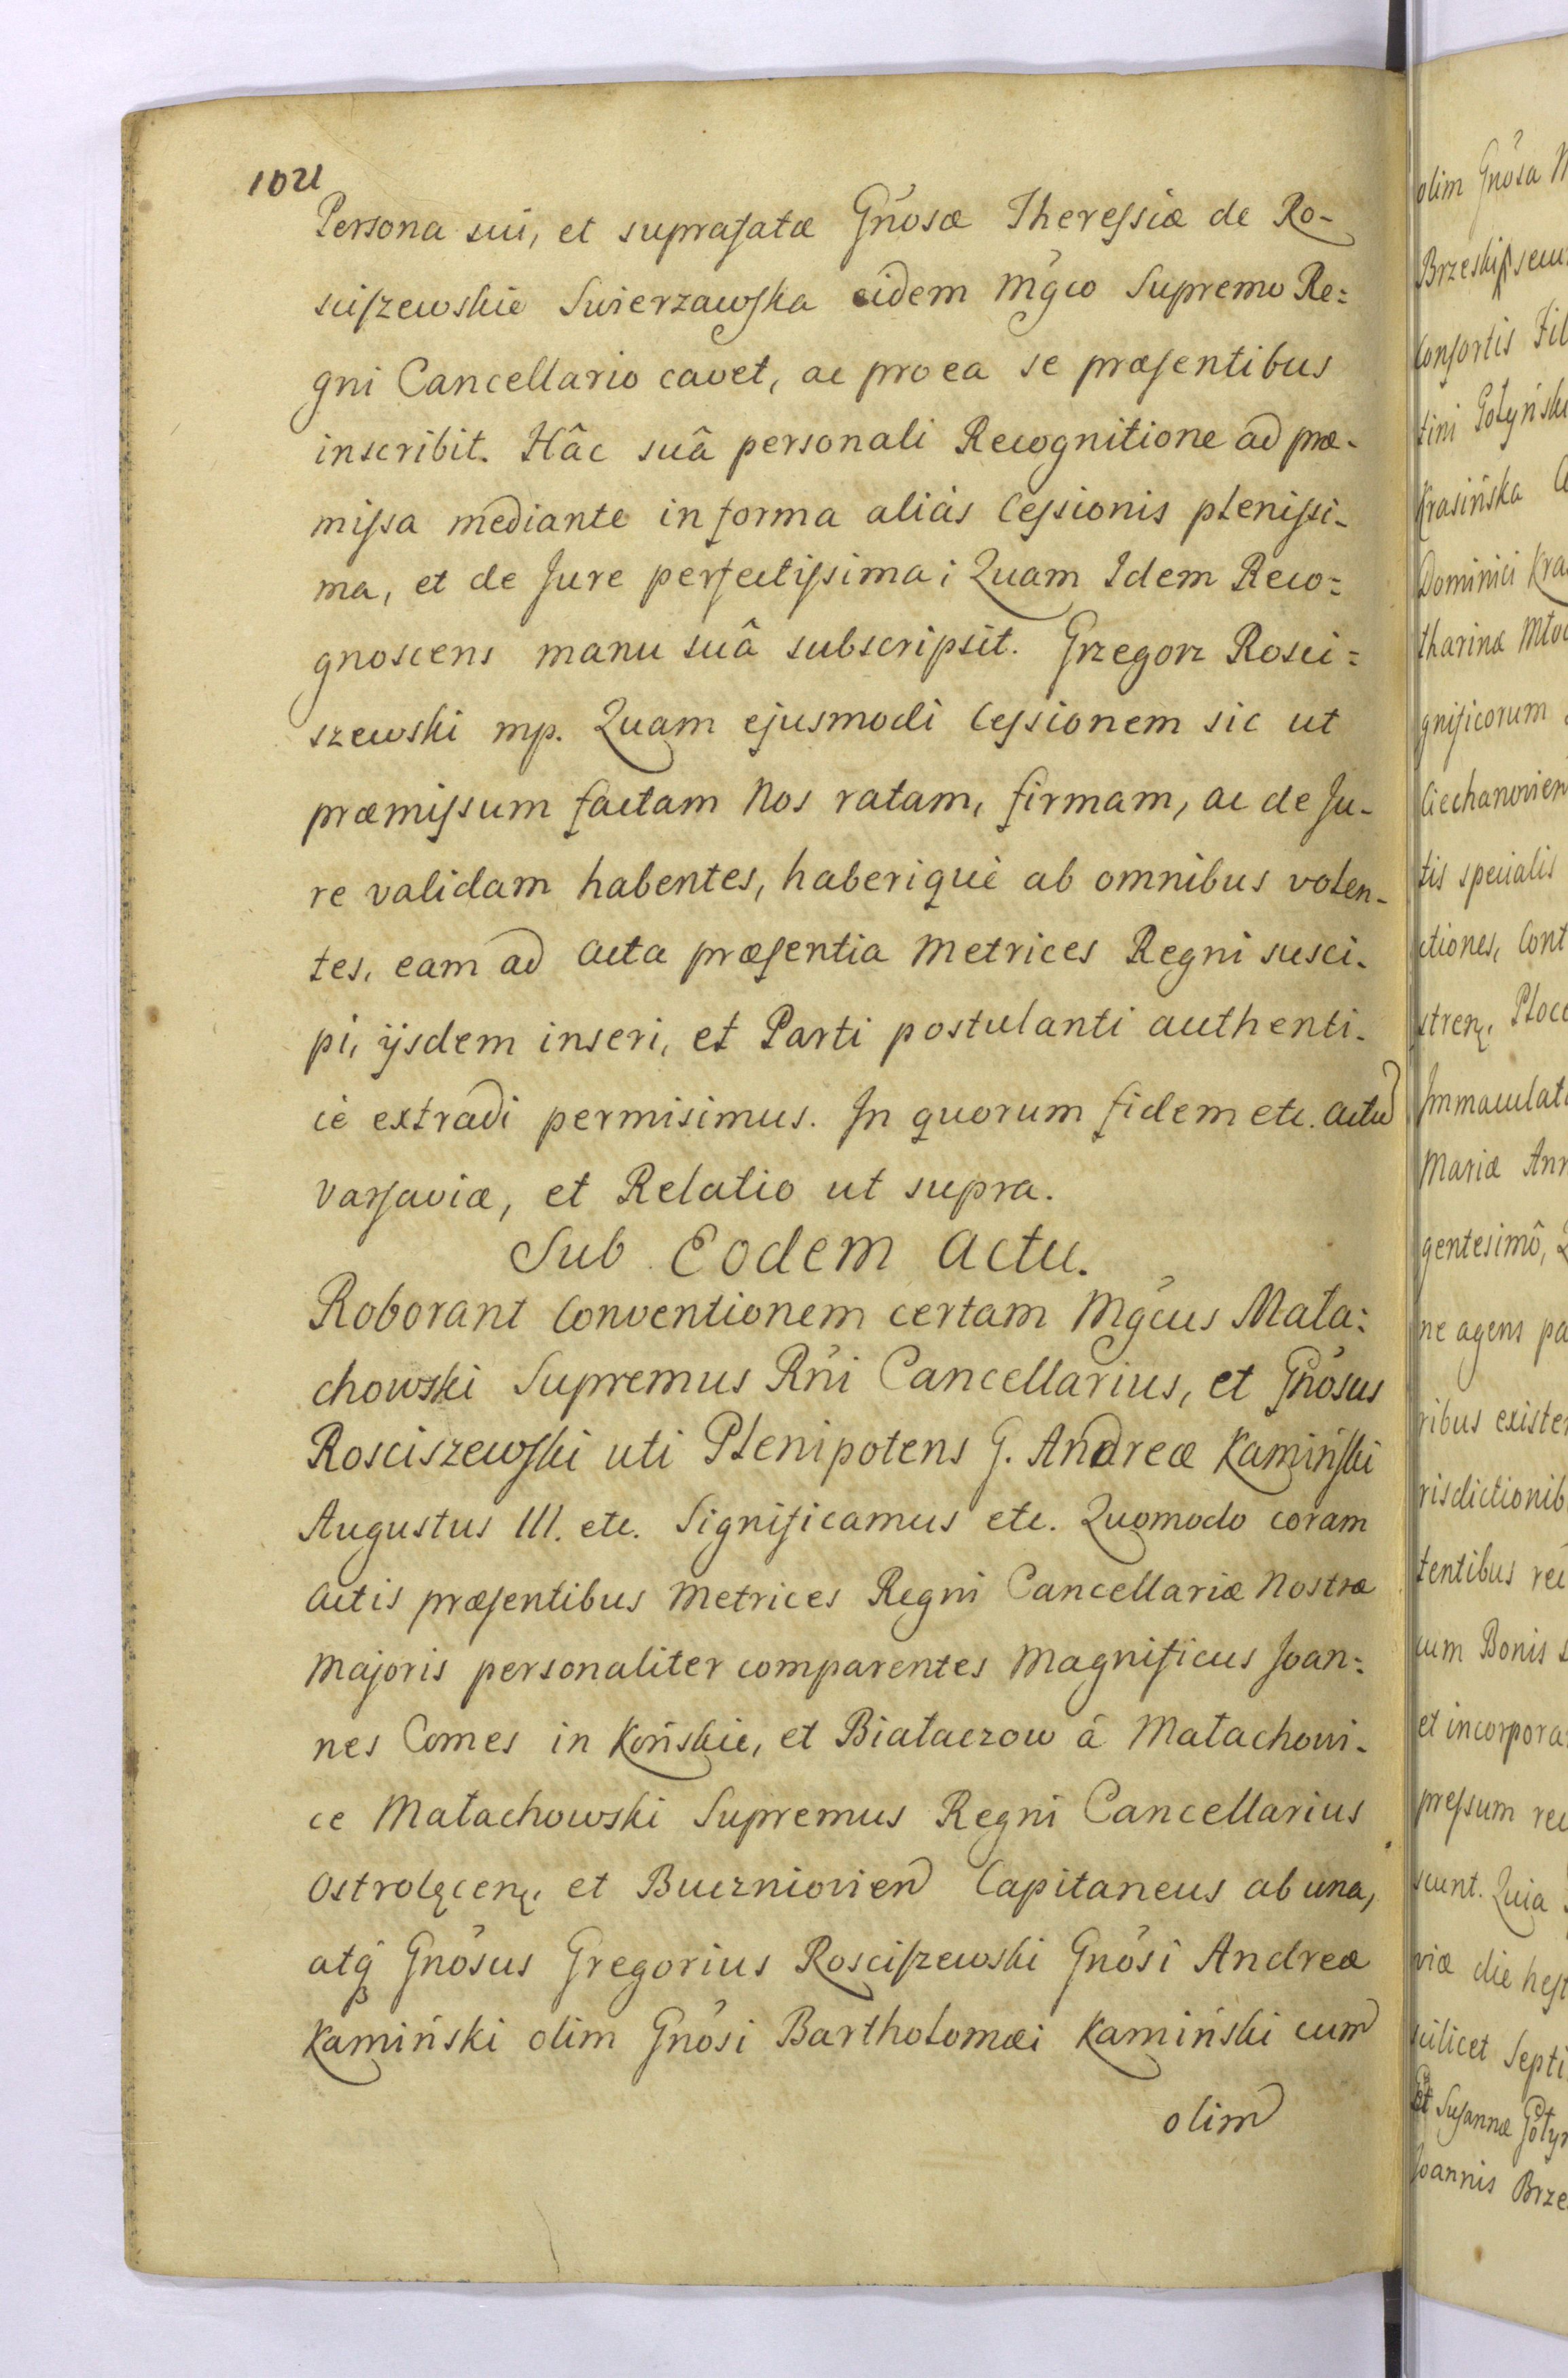 1021
Persona sui, et suprafatæ Gnõsæ Theressiæ de Ro-
sciszewskie Swierzawska eidem Mgco Supremo Re=
gni Cancellario cavet, ac pro ea se præsentibus
inscribit. Hâc suâ personali Recognitione ad præ-
missa mediante in forma aliàs Cessionis plenissi-
ma, et de Jure perfectissima; Quam Idem Reco=
gnoscens manu suâ subscripsit. Grzegorz Rosci=
szewski mp. Quam ejusmodi Cessionem sic ut
præmissum factam Nos ratam, firmam, ac de Ju-
re validam habentes, haberiquè ab omnibus volen-
tes, eam ad Acta præsentia Metrices Regni susci-
pi, ijsdem inseri, et Parti postulanti authenti-
cè extradi permisimus. In quorum fidem etc. Actu
Varsaviæ, et Relatio ut supra.
Sub Eodem Actu.
Roborant Conventionem certam Mgcus Mała=
chowski Supremus Rńi Cancellarius, et Gnõsus
Rosciszewski uti Plenipotens G. Andreæ Kamiński
Augustus III. etc. Significamus etc. Quomodo coram
Actis præsentibus Metrices Regni Cancellariæ Nostræ
Majoris personaliter comparentes Magnificus Joan=
nes Comes in Końskie, et Białaczow â Małachowi-
ce Małachowski Supremus Regni Cancellarius
Ostrolęcen, et Buczniovien Capitaneus ab una,
atq Gnõsus Gregorius Rosciszewski Gnõsi Andreæ
Kamiński olim Gnõsi Bartholomæi Kamiński cum
olim
olim Gnõsa
Brzeski, seu
Consortis Fil
tini Gołyński
Krasińska
Dominici Kra
tharina Młoc
gnificorum
Ciechanovien
tis specialis
ctiones, Cont
stren, Ploce
Immaculat
Mariæ Ann
gentesimô,
ne agens pa
ribus existen
risdictionib
tentibus
cum Bonis
et incorpora
pressum rec
scunt. Quia
viæ die hest
scilicet Septi
et Susannæ Gołyn
Joannis Brze